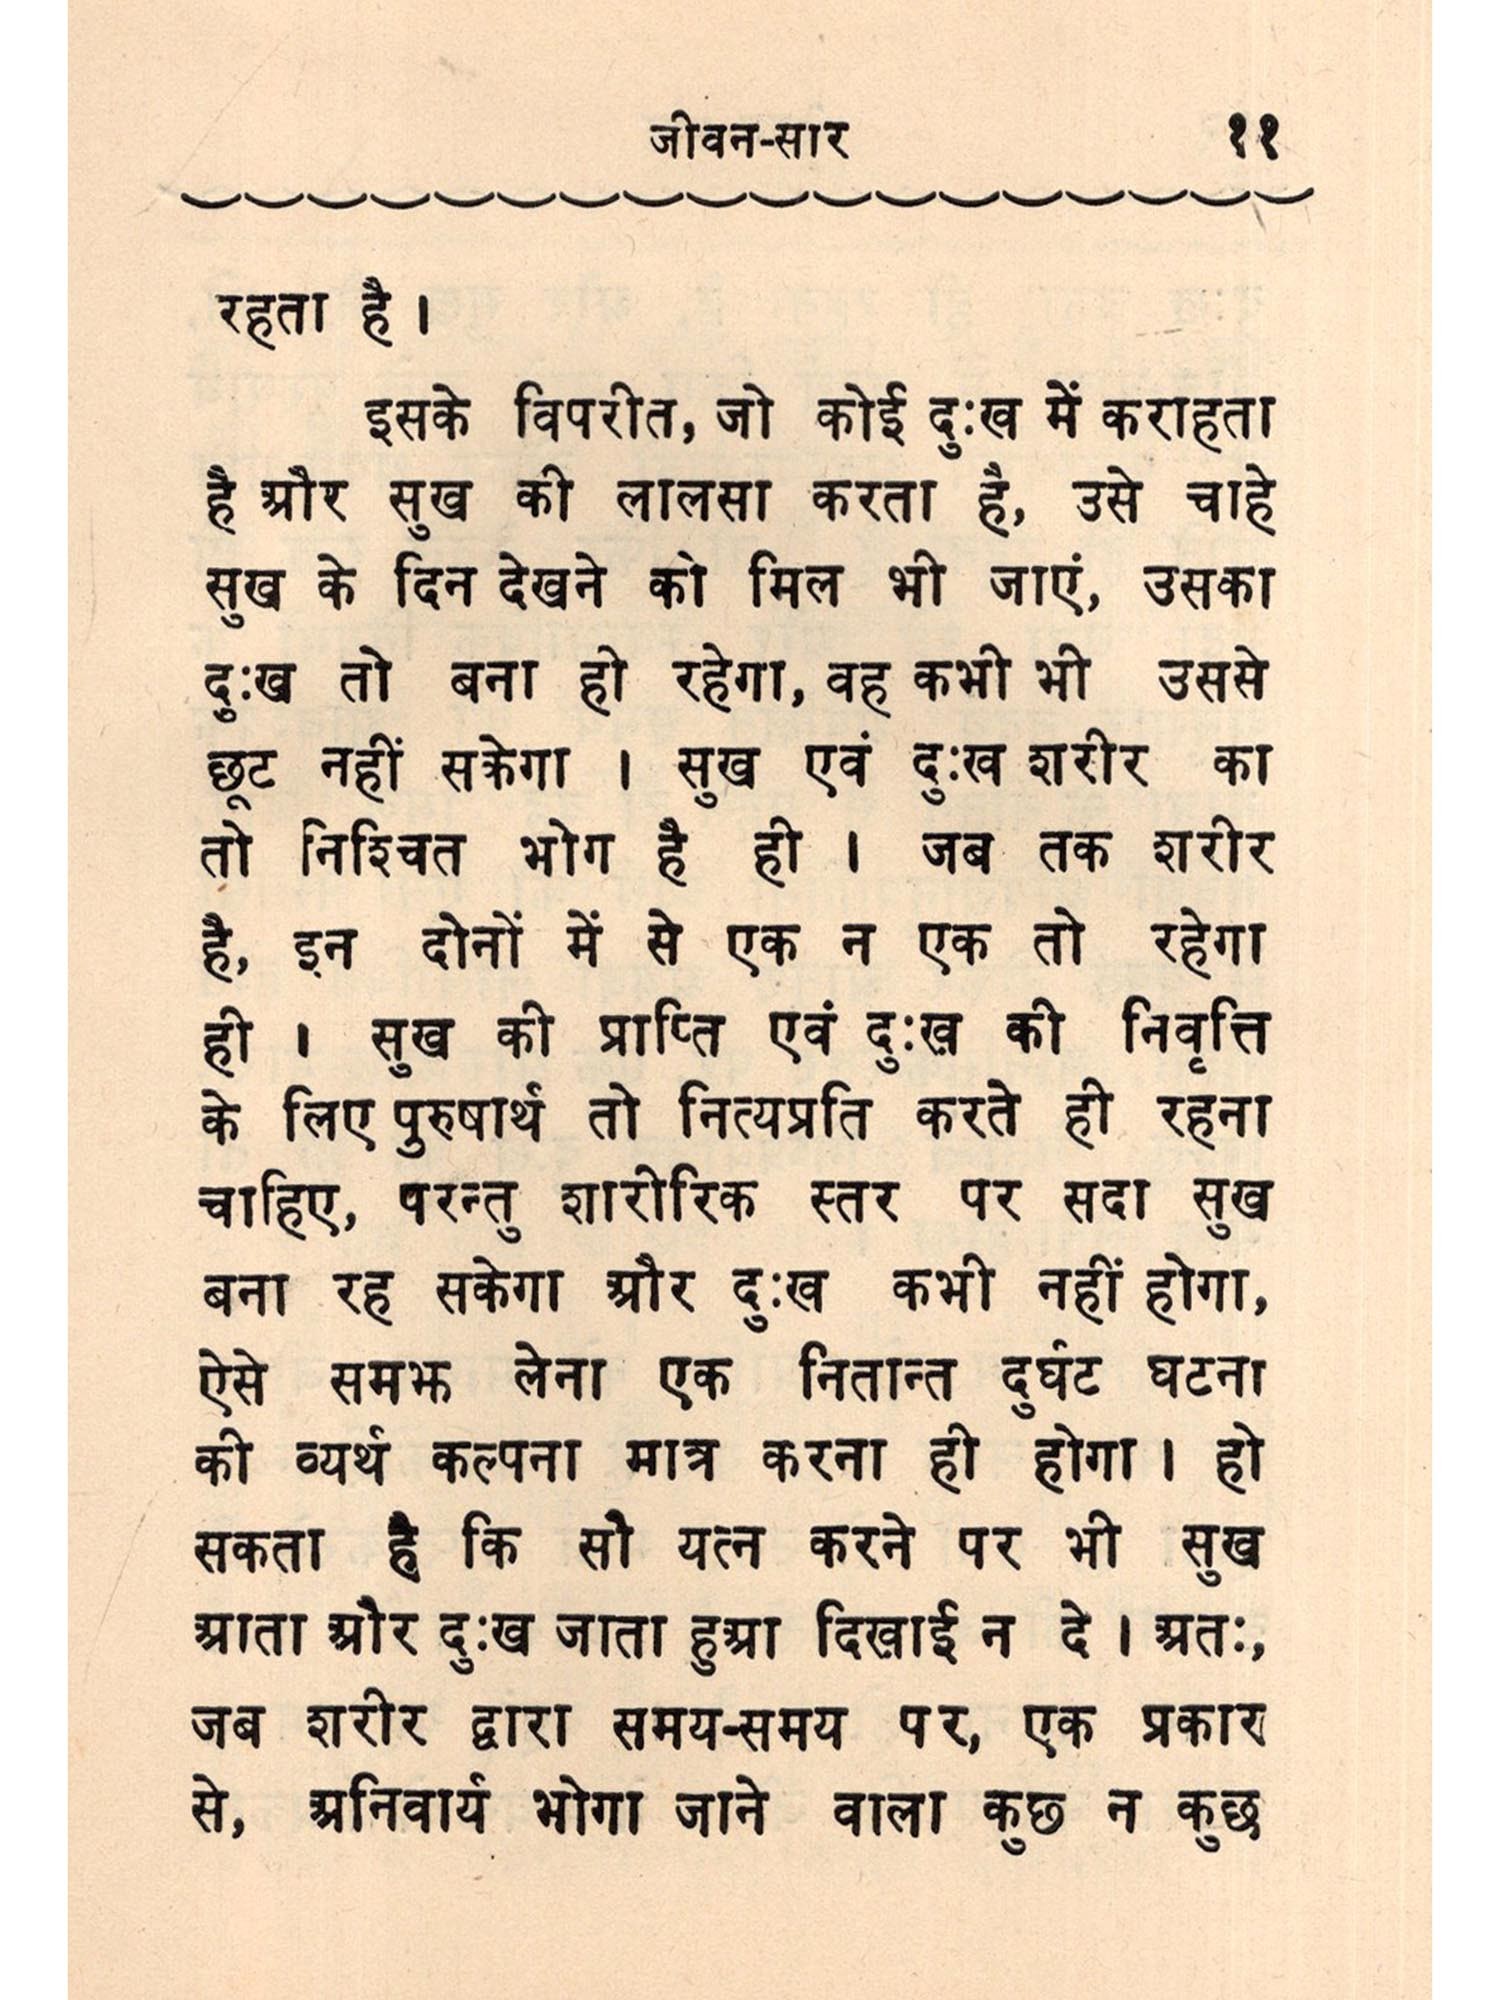 जीवन-सार ११
रहता है ।
इसके विपरीत, जो कोई दुःख में कराहता
है और सुख की लालसा करता है, उसे चाहे
सुख के दिन देखने को मिल भी जाएं, उसका
दुःख तो बना ही रहेगा, वह कभी भी उससे
छूट नहीं सकेगा । सुख एवं दुःख शरीर का
तो निश्चित भोग है ही । जब तक शरीर
है, इन दोनों में से एक न एक तो रहेगा
ही । सुख की प्राप्ति एवं दुःख की निवृत्ति
के लिए पुरुषार्थ तो नित्यप्रति करते ही रहना
चाहिए, परन्तु शारीरिक स्तर पर सदा सुख
बना रह सकेगा और दुःख कभी नहीं होगा,
ऐसे समझ लेना एक नितान्त दुर्घट घटना
की व्यर्थ कल्पना मात्र करना ही होगा । हो
सकता है कि सौ यत्न करने पर भी सुख
आता और दुःख जाता हुआ दिखाई न दे । अतः,
जब शरीर द्वारा समय-समय पर, एक प्रकार
से, अनिवार्य भोगा जाने वाला कुछ न कुछ